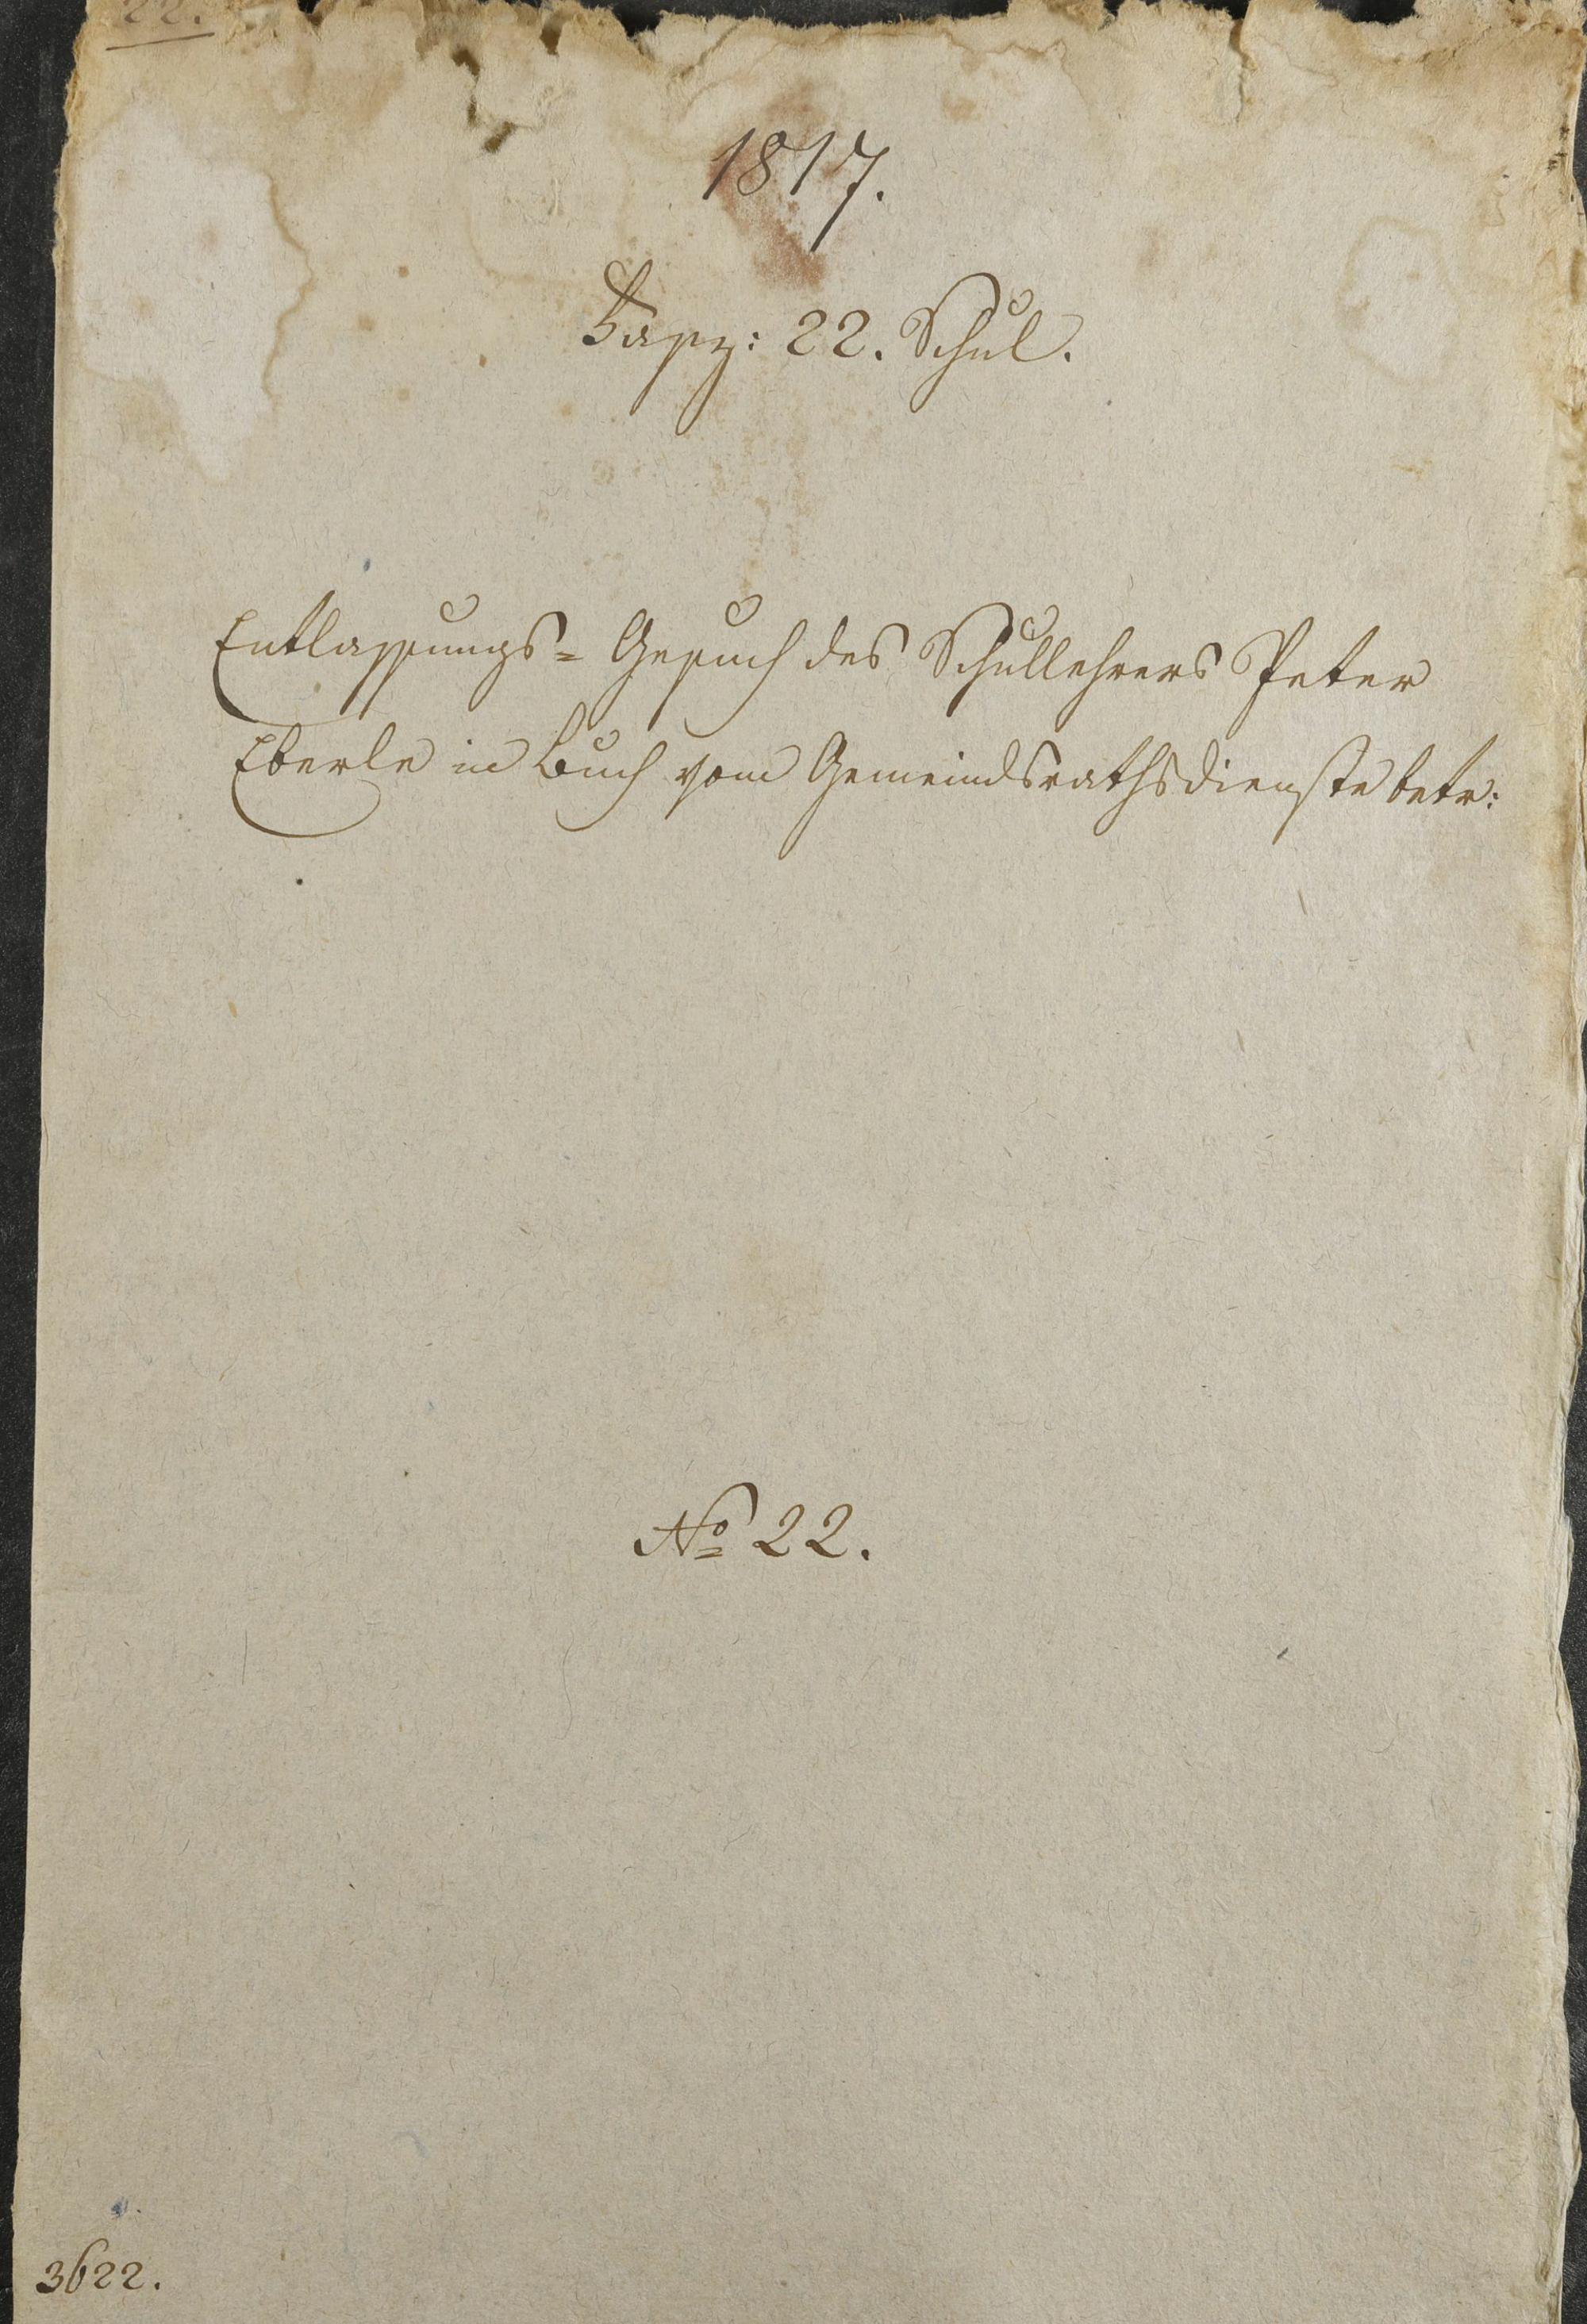 22.
1817.
Fasz: 22. Schul.
Entlassungs= Gesuch des Schullehrers Peter
Eberle in Buch vom Gemeindsrathsdienste betr:
No 22.
3622.